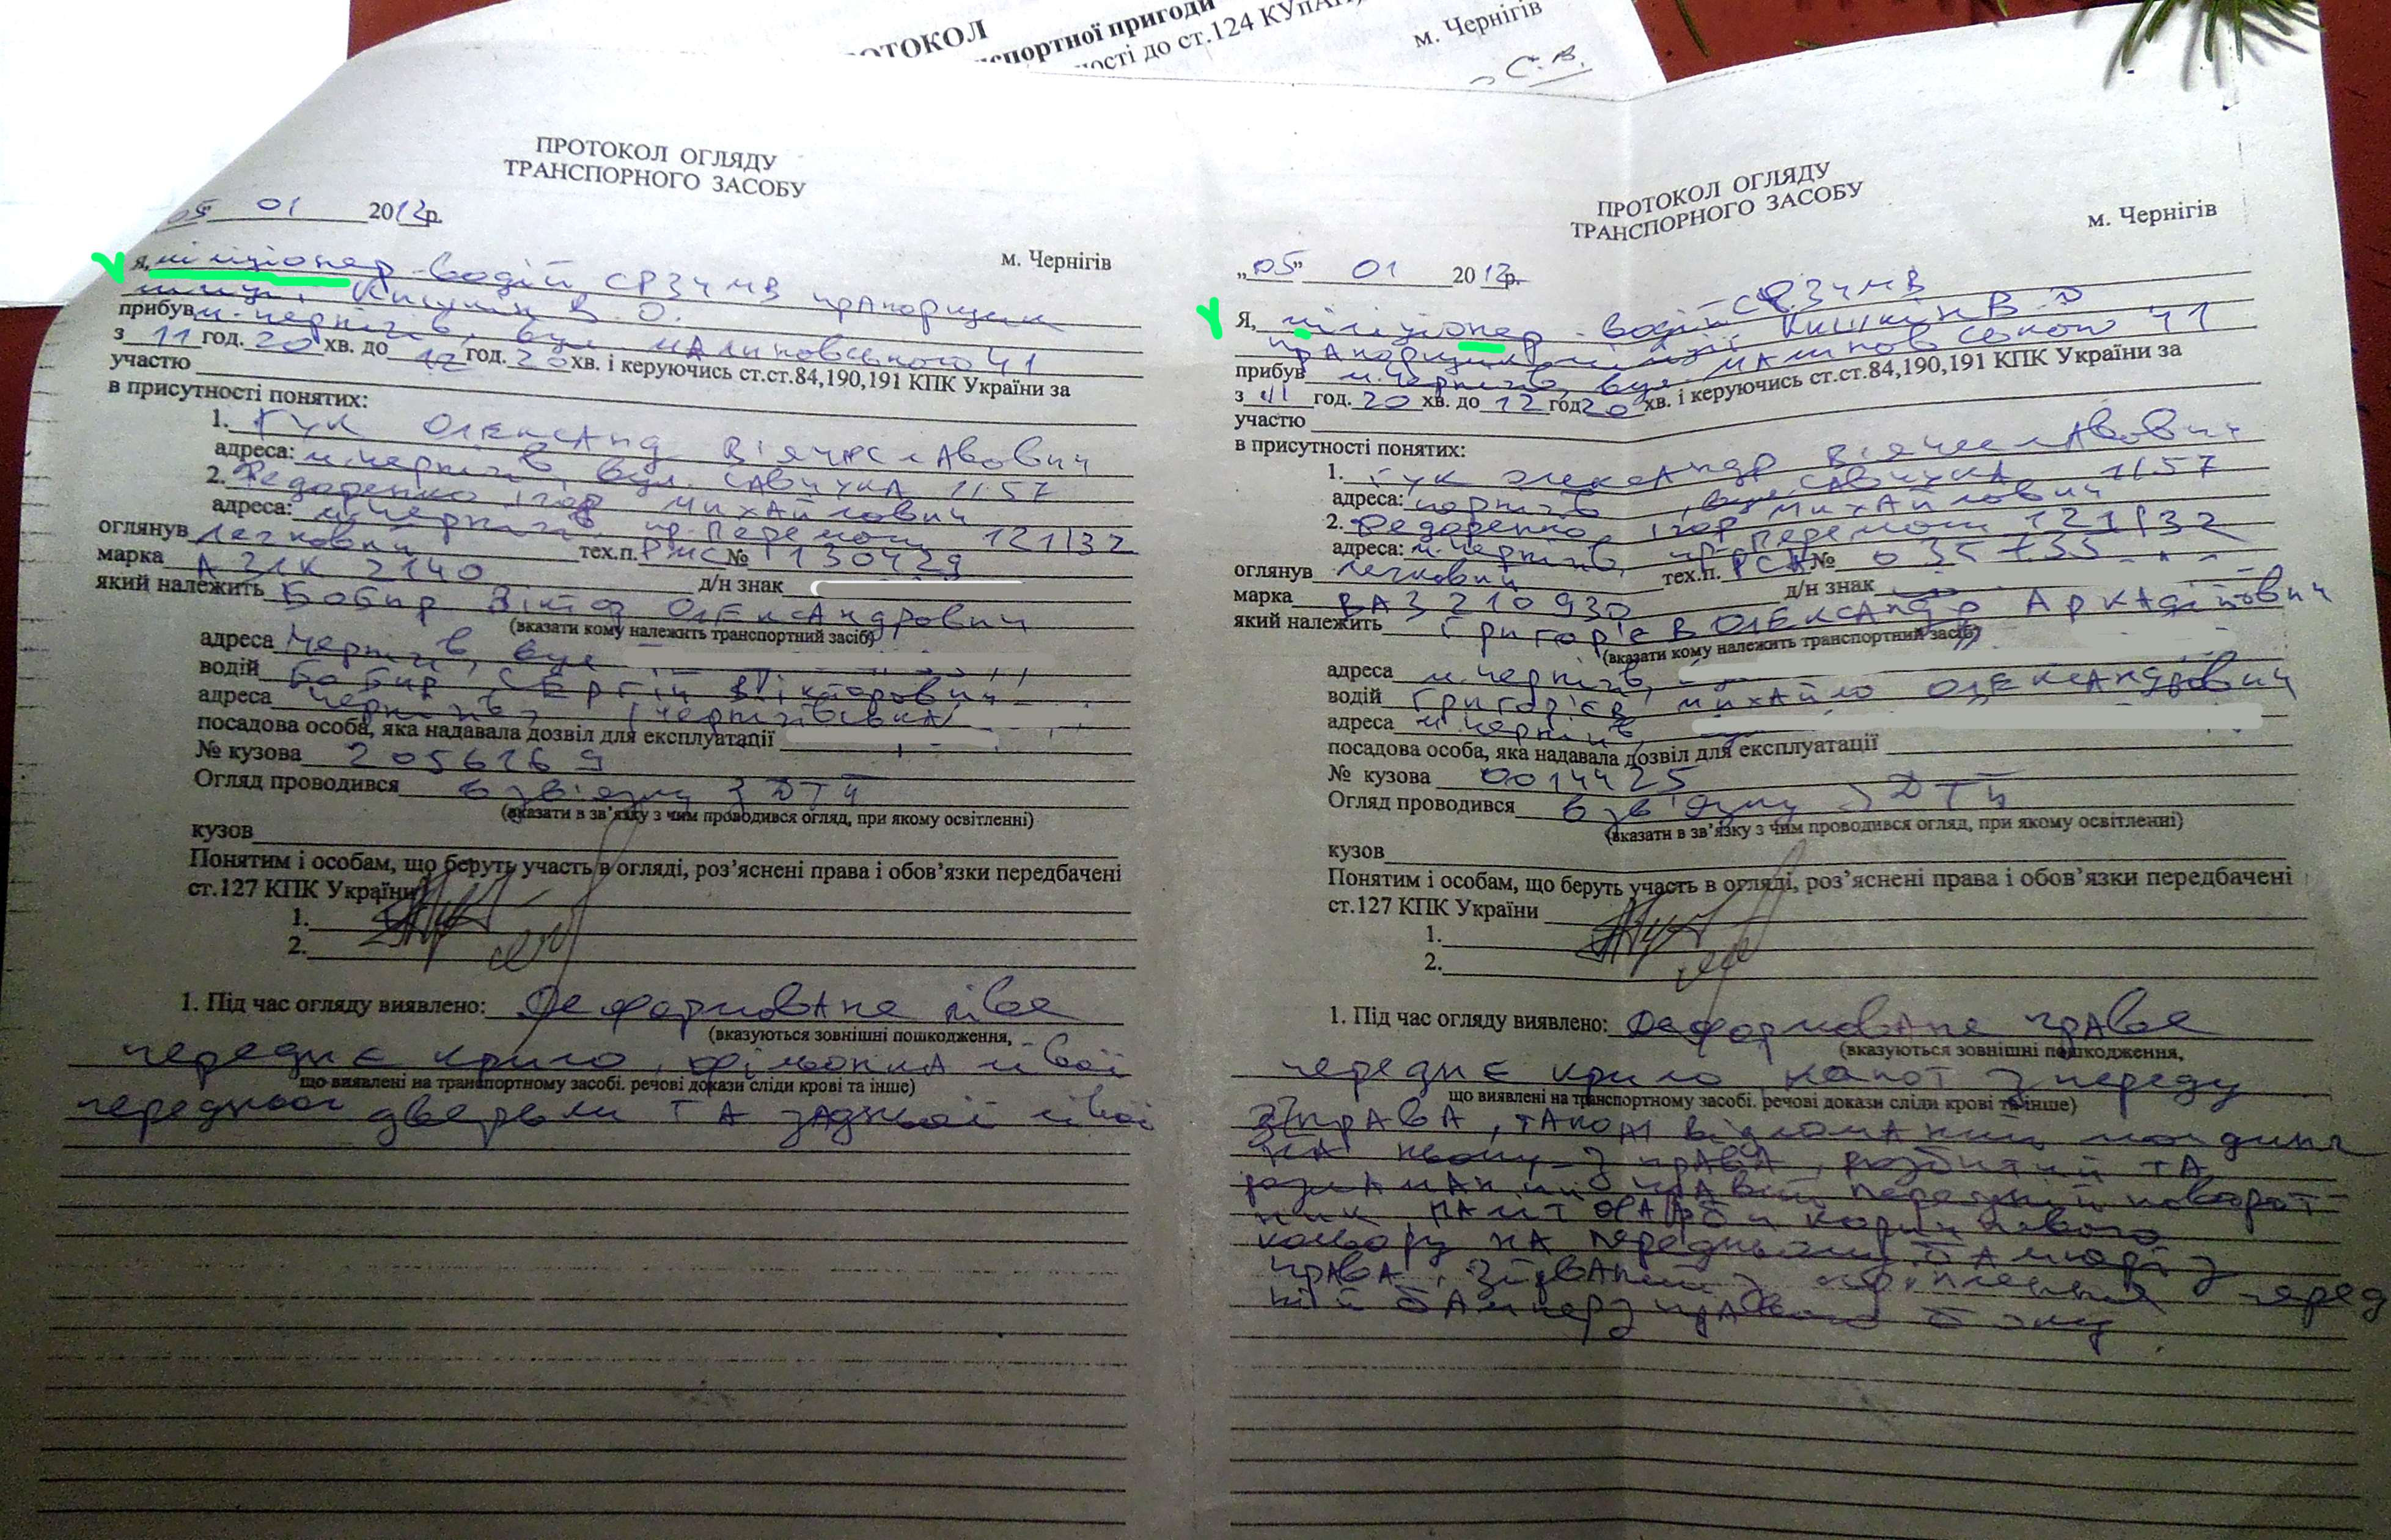 ПРОТОКОЛ
спортної пригоди
ності до ст.124 КУпАП,
м. Чернігів
ПРОТОКОЛ ОГЛЯДУ
ТРАНСПОРНОГО ЗАСОБУ
05 01 2012р.
м. Чернігів
Я, міліціонер-водій СРЗЧМВ прапорщик
міліції Кишкін В. О.
прибув м. Чернігів, вул. Малиновського 41
з 11 год. 20 хв. до 12 год. 20 хв. і керуючись ст.ст.84,190,191 КПК України за
участю
в присутності понятих:
1. Гук Олександ Вячеславович
адреса: м. Чернігів, вул. Савчука 11.57
2. Федоренко Ігор Михайлович
адреса: м. Чернігів, пр. Перемоги 121/32
оглянув легковий тех.п. РМС № 130429
марка АЗЛК 2140 д/н знак
який належить Бобир Віктор Олександрович
(вказати кому належить транспортний засіб)
адреса Чернігів, вул
водій Бобир Сергій Вікторович
адреса Чернігів,
посадова особа, яка надавала дозвіл для експлуатації
№ кузова 2056169
Огляд проводився в зв'язку з ДТП
(вказати в зв’язку з чим проводився огляд, при якому освітленні)
кузов
Понятим і особам, що беруть участь в огляді, роз’яснені права і обов’язки передбачені
ст.127 КПК України
1.
2.
1. Під час огляду виявлено: Деформоване ліве
(вказуються зовнішні пошкодження,
переднє крило, фільонка лівої
що виявлені на транспортному засобі. речові докази сліди крові та інше)
передньої двері та задньої лівої
ПРОТОКОЛ ОГЛЯДУ
ТРАНСПОРНОГО ЗАСОБУ
м. Чернігів
„05” 01 2012р.
Я, міліціонер-водій СРЗЧМВ
прапорщик міліції Кишкін В. О
прибув м. Чернігів, вул. Малиновського 41
з 11 год. 20 хв. до 12 год 20 хв. і керуючись ст.ст.84,190,191 КПК України за
участю
в присутності понятих:
1. Гук Олександр Вячеславович
адреса: Чернігів, вул Савчука 11.57
2. Федоренко Ігор Михайлович
адреса: м. Чернігів, пр. Перемоги 121/32
оглянув легковий тех.п. РСА № 035735
марка ВАЗ 210930 д/н знак
який належить Григор'єв Олександр Аркадійович
(вказати кому належить транспортний засіб)
адреса м. Чернігів,
водій Григор'єв Михайло Олександрович
адреса м. Чернігів,
посадова особа, яка надавала дозвіл для експлуатації
№ кузова 0014425
Огляд проводився в зв'язку з ДТП
(вказати в зв’язку з чим проводився огляд, при якому освітленні)
кузов
Понятим і особам, що беруть участь в огляді, роз’яснені права і обов’язки передбачені
ст.127 КПК України
1.
2.
1. Під час огляду виявлено: Деформоване праве
(вказуються зовнішні пошкодження,
переднє крило, капот з переду
що виявлені на транспортному засобі. речові докази сліди крові та інше)
з права, також відломаний молдинг
на ньому з права, розбитий та
розламаний правий передній поворот
ник, наліт фарби коричневого
кольору на передньому бампері з
права, зірваний з кріплення перед
ній бампер з правого боку